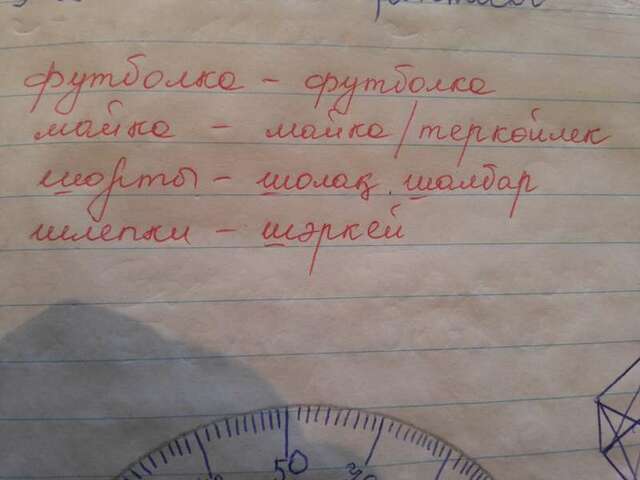 футболка - футболка
майка - майка/теркөйлек
шорты - шолақ шалбар
шлепки - шәркей
50